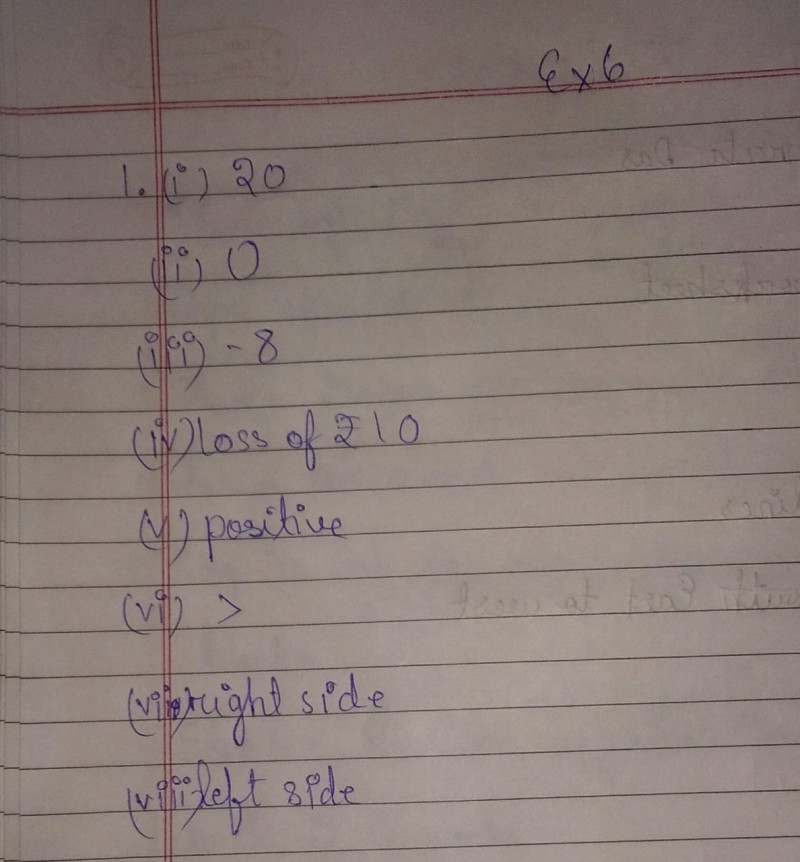 Ex 6
1. (i) 20
(ii) 0
(iii) - 8
(iv) loss of ₹10
(v) positive
(vi) >
(vii) right side
(viii) left side